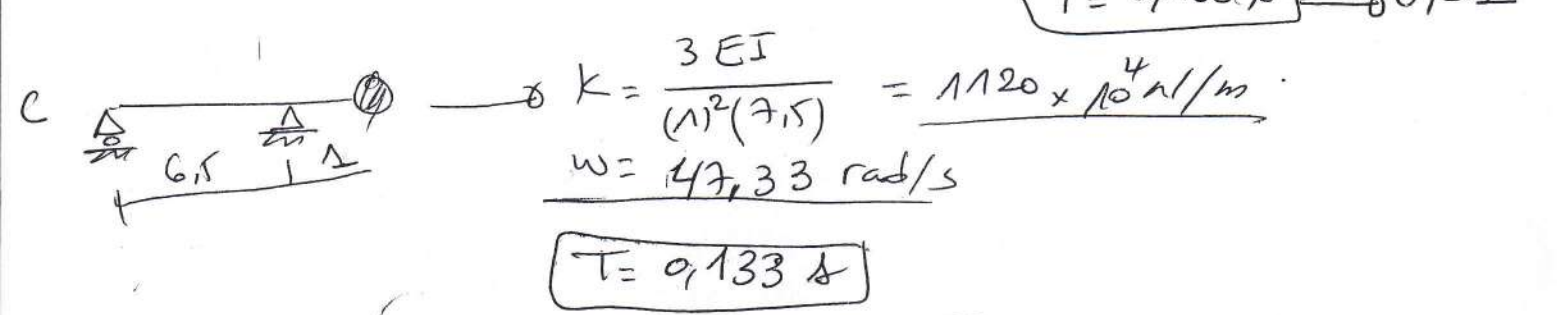 C K = 3 EI / (1)²(7,5) = 1120 x 10⁴ N/m.
6,5 1
w = 47,33 rad/s
T = 0,133 s